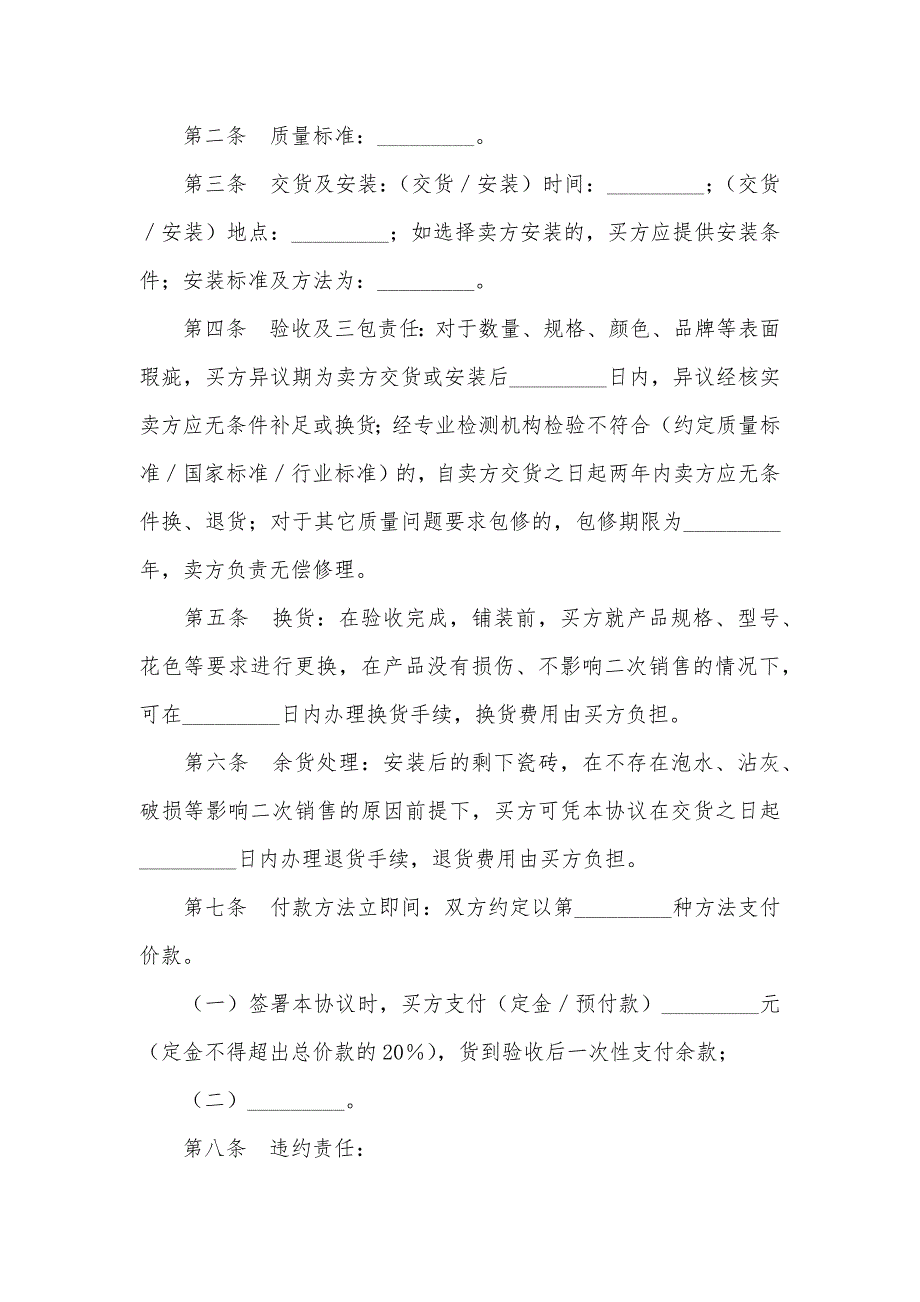 第二条　质量标准：_________。
第三条　交货及安装：（交货／安装）时间：_________；（交货
／安装）地点：_________；如选择卖方安装的，买方应提供安装条
件；安装标准及方法为：_________。
第四条　验收及三包责任：对于数量、规格、颜色、品牌等表面
瑕疵，买方异议期为卖方交货或安装后_________日内，异议经核实
卖方应无条件补足或换货；经专业检测机构检验不符合（约定质量标
准／国家标准／行业标准）的，自卖方交货之日起两年内卖方应无条
件换、退货；对于其它质量问题要求包修的，包修期限为_________
年，卖方负责无偿修理。
第五条　换货：在验收完成，铺装前，买方就产品规格、型号、
花色等要求进行更换，在产品没有损伤、不影响二次销售的情况下，
可在_________日内办理换货手续，换货费用由买方负担。
第六条　余货处理：安装后的剩下瓷砖，在不存在泡水、沾灰、
破损等影响二次销售的原因前提下，买方可凭本协议在交货之日起
_________日内办理退货手续，退货费用由买方负担。
第七条　付款方法立即间：双方约定以第_________种方法支付
价款。
（一）签署本协议时，买方支付（定金／预付款）_________元
（定金不得超出总价款的20％），货到验收后一次性支付余款；
（二）_________。
第八条　违约责任：